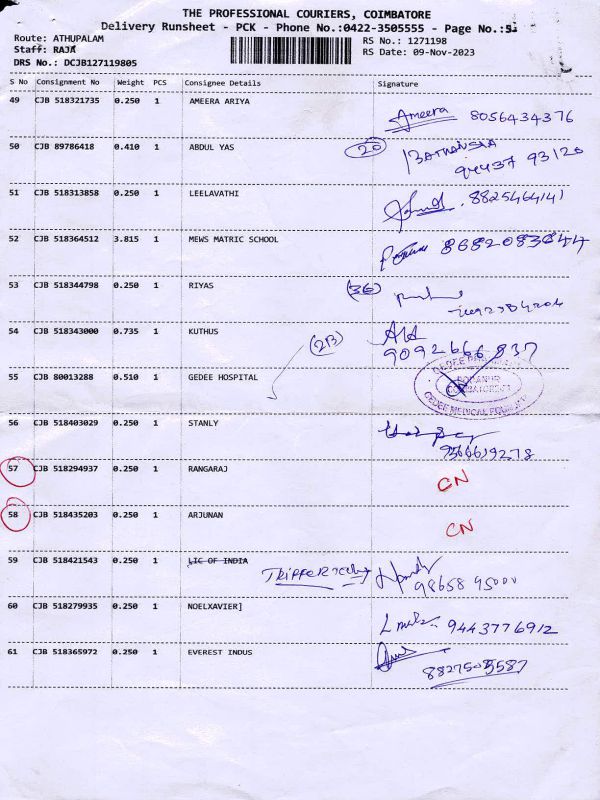 THE PROFESSIONAL COURIERS, COIMBATORE
Delivery Runsheet - PCK - Phone No.:0422-3505555 - Page No.:5
Route: ATHUPALAM
RS No.: 1271198
Staff: RAJA
RS Date: 09-Nov-2023
DRS No.: DCJB127119805
S No Consignment No Weight PCS Consignee Details Signature
49 CJB 518321735 0.250 1 AMEERA ARIYA Ameera 8056434376
50 CJB 89786418 0.410 1 ABDUL YAS (20)
94437 93120
51 CJB 518313858 0.250 1 LEELAVATHI 8825464141
52 CJB 518364512 3.815 1 MEWS MATRIC SCHOOL
53 CJB 518344798 0.250 1 RIYAS (36)
54 CJB 518343000 0.735 1 KUTHUS
(2B) 9092666837
55 CJB 80013288 0.510 1 GEDEE HOSPITAL
GEDEE MEDICAL
56 CJB 518403029 0.250 1 STANLY
9566619278
57 CJB 518294937 0.250 1 RANGARAJ CN
58 CJB 518435203 0.250 1 ARJUNAN CN
59 CJB 518421543 0.250 1 LIC OF INDIA
98658 95000
60 CJB 518279935 0.250 1 NOELXAVIER] 9443776912
61 CJB 518365972 0.250 1 EVEREST INDUS